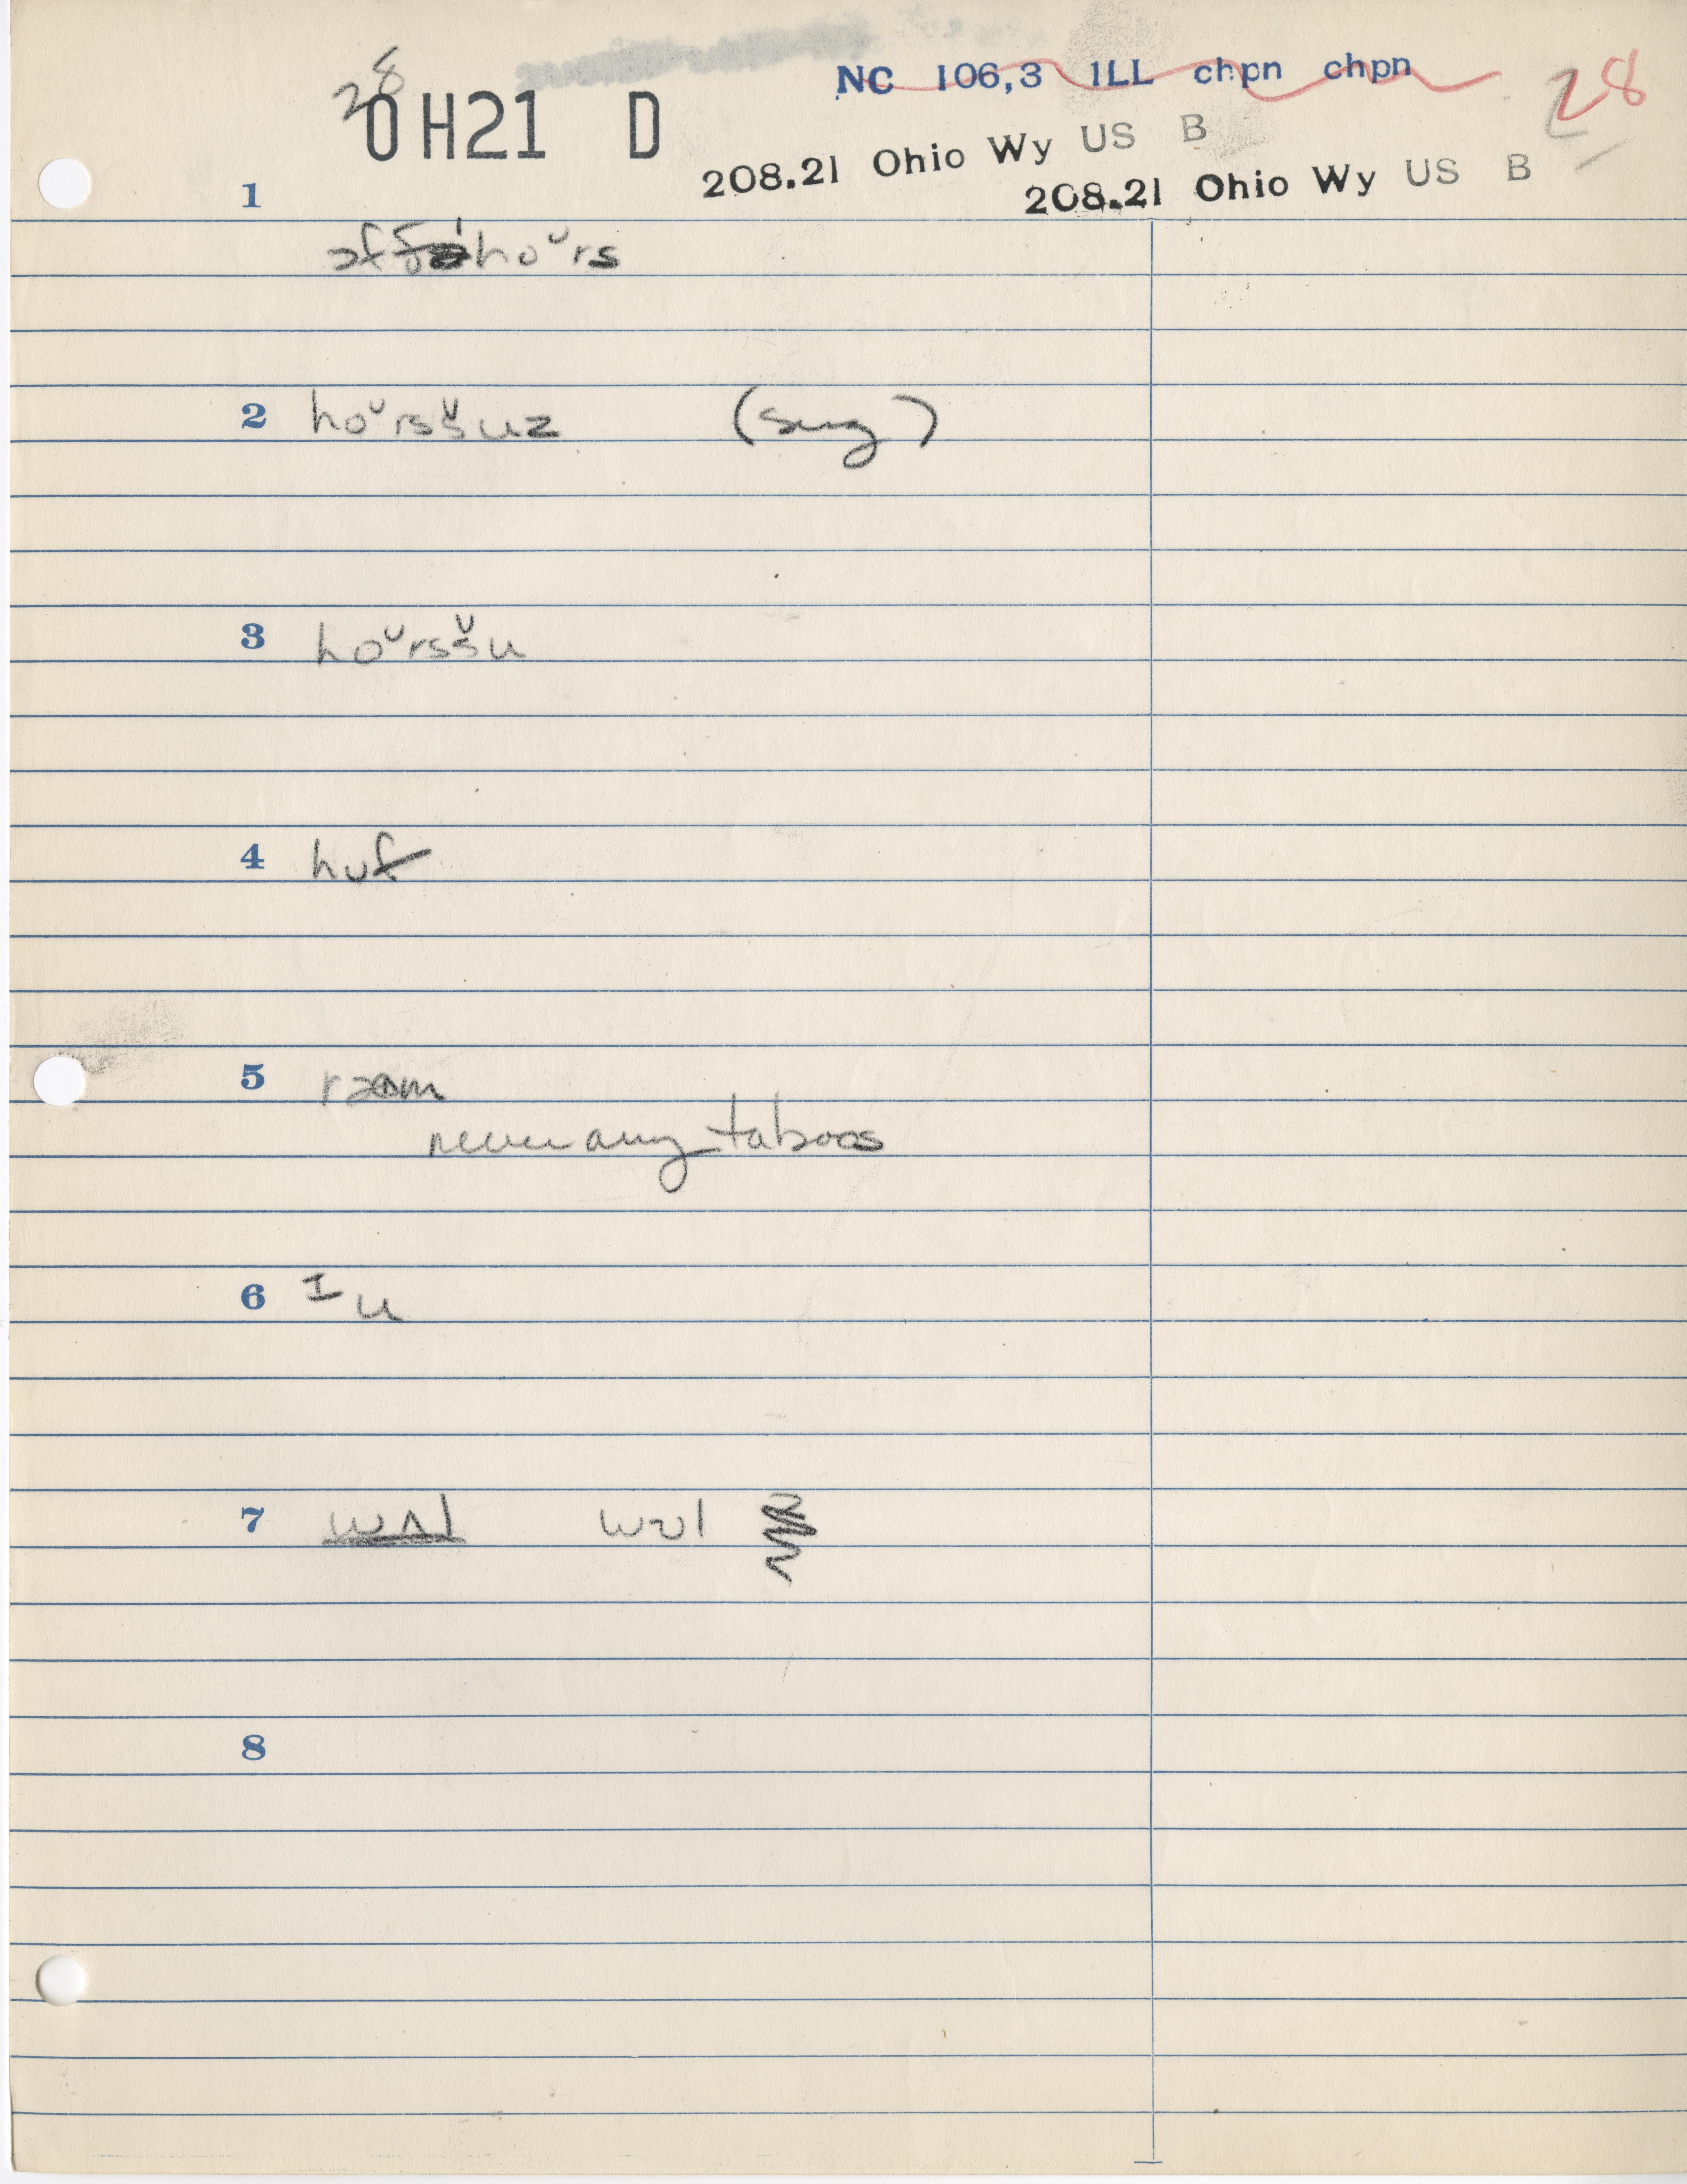 28
OH21 D
NC 106,3 1LL chpn chpn
28
208.21 Ohio Wy US B
208.21 Ohio Wy US B
1
hoᵕrs
2 hoᵕrsšuz (sug)
3 hoᵕrsšu
4 hᴜf
5
never any taboos
6 ɪ u
7 wʌl
8